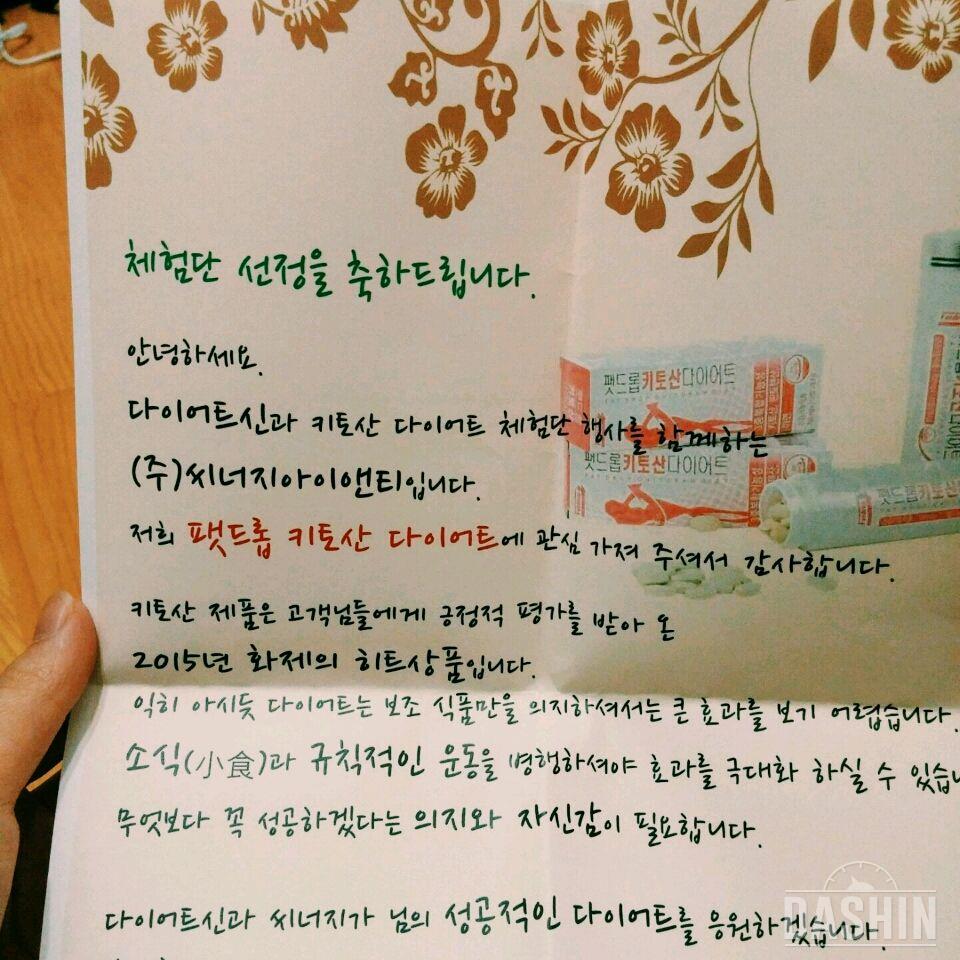 체험단 선정을 축하드립니다.
안녕하세요.
다이어트신과 키토산 다이어트 체험단 행사를 함께하는
(주)씨너지아이앤티입니다.
저희 팻드롭 키토산 다이어트에 관심 가져 주셔서 감사합니다.
키토산 제품은 고객님들에게 긍정적 평가를 받아 온
2015년 화제의 히트상품입니다.
익히 아시듯 다이어트는 보조 식품만을 의지하셔서는 큰 효과를 보기 어렵습니다.
소식(小食)과 규칙적인 운동을 병행하셔야 효과를 극대화 하실 수 있습니
무엇보다 꼭 성공하겠다는 의지와 자신감이 필요합니다.
다이어트신과 씨너지가 님의 성공적인 다이어트를 응원하겠습니다.
팻드롭키토산다이어트
팻드롭키토산다이어트
팻드롭키토산다이어트
DASHIN